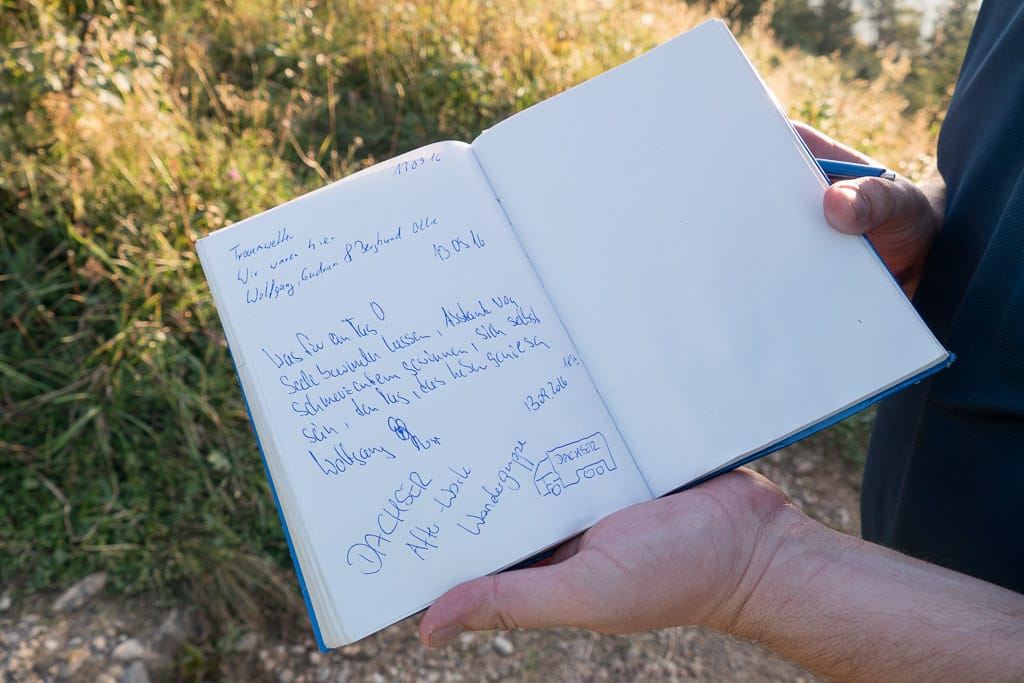 13.09.16
Traumwetter
Wir waren hier
Wolfgang, Gudrun & Berghund Ollie
13.09.16
Was für ein Tag!
Seele baumeln lassen, Abstand von
gewinnen, sich selbst
sein, den Tag, das Leben genießen
Wolfgang
13.09.2016
DACHSER
After-Work
Wandergruppe
DACHSER